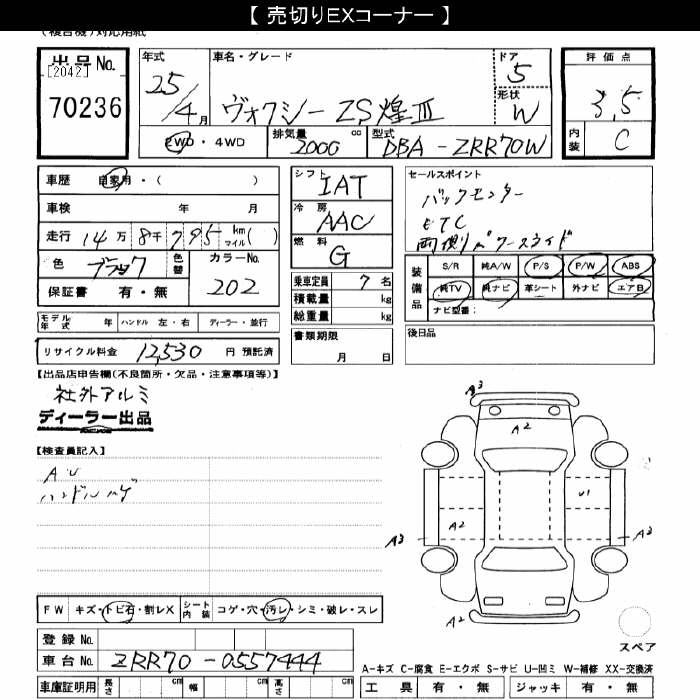 【 売切りEXコーナー 】
(複合機)対応用紙
出品No.
[2042]
70236
年式 25/4月
車名・グレード
ヴォクシー ZS煌Ⅲ
ドア 5
形状 W
2WD・4WD
排気量 2000 cc
型式 DBA-ZRR70W
評価点
3.5
内装 C
車歴 自家用・( )
車検 年 月
走行 14万8千795 km マイル( )
色 ブラック 色替 カラーNo. 202
保証書 有・無
シフト IAT
冷房 AAC
燃料 G
乗車定員 7名
積載量 kg
総重量 kg
書類期限
月 日
セールスポイント
バックモニター
ETC
両側パワースライド
装備品
S/R 純A/W P/S P/W ABS
純TV 純ナビ 革シート 外ナビ エアB
ナビ型番:
モデル年式 年 ハンドル 左・右 ディーラー・並行
リサイクル料金 12,530 円 預託済
後日品
【出品店申告欄(不良箇所・欠品・注意事項等)】
社外アルミ
ディーラー出品
【検査員記入】
AU
ハンドルハゲ
A3
A2
U1
A2
A3
A3
A2
FW キズ・トビ石・割レX シート内装 コゲ・穴・汚レ・シミ・破レ・スレ
スペア
登録 No.
車台 No. ZRR70-0557444
A-キズ C-腐食 E-エクボ S-サビ U-凹ミ W-補修 XX-交換済
車庫証明用 長さ cm 幅 cm 高さ cm
工具 有・無 ジャッキ 有・無